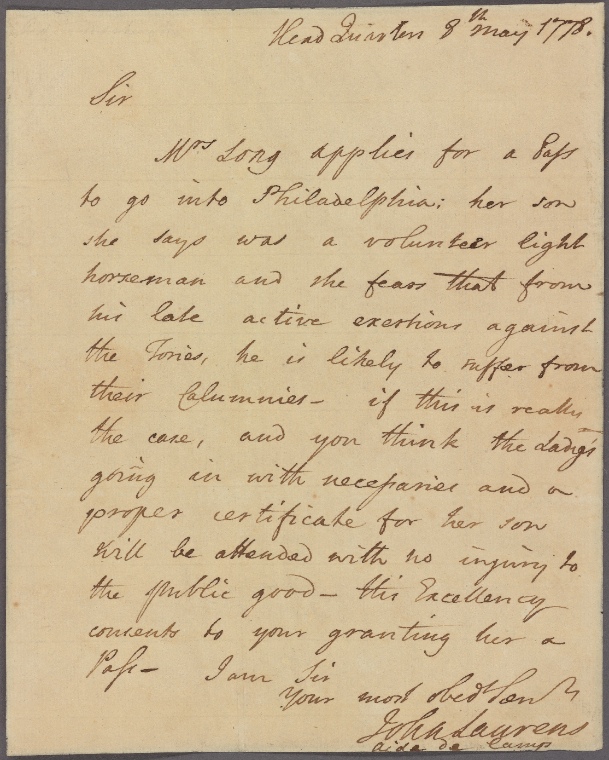 Head Quarters 8th May 1778.
Sir
Mrs Long applies for a Pass
to go into Philadelphia; her son
she says was a volunteer light
horseman and she fears that from
his late active exertions against
the Tories, he is likely to suffer from
their Calumnies - if this is really
the case, and you think the Lady's
going in with necessaries and a
proper certificate for her son
will be attended with no injury to
the public good - His Excellency
consents to your granting her a
Pass - I am Sir
Your most obedt Servt
John Laurens
Aide de Camp